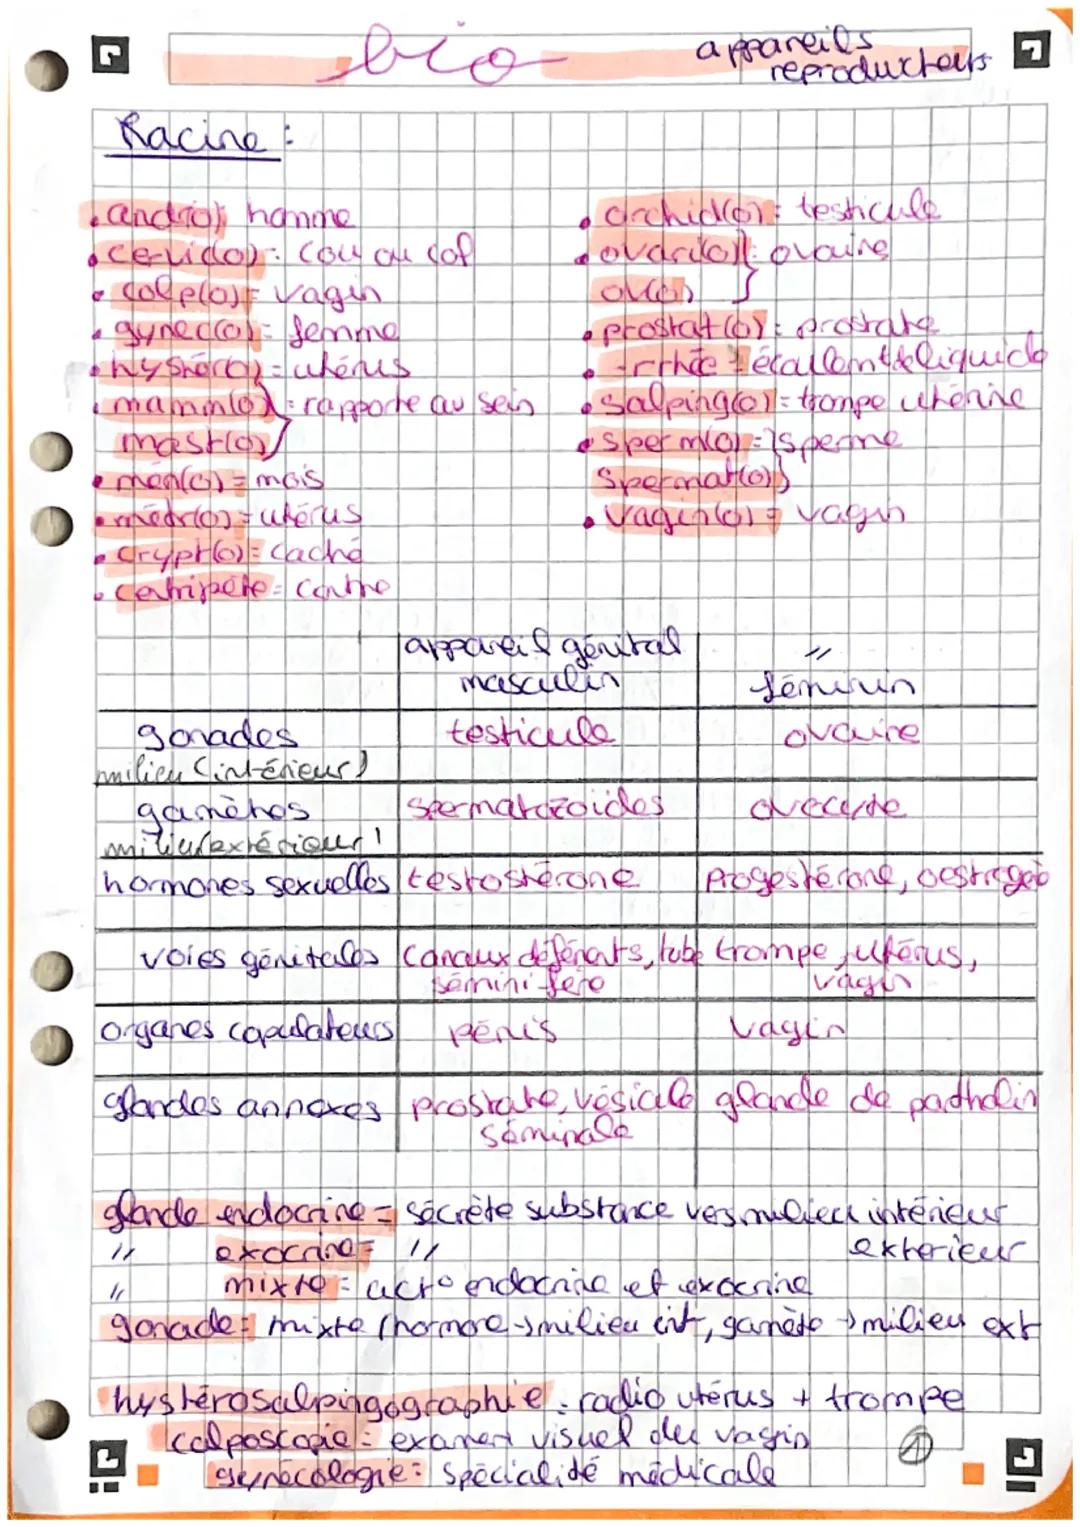 bio
appareils
reproducteurs
Racine :
• andro): homme
• cervic(o) : cou ou col
• colp(o) = vagin
• gynec(o) = femme
• hystér(o) = utérus
• mamm(o) } = rapporte au sein
mast(o)
• mén(o) = mois
• métr(o) = utérus
• crypt(o) = caché
• centripète = centre
• orchid(o) : testicule
• ovari(o) } : ovaire
ov(o)
• prostat(o) : prostate
• -rrhée : écoulemt de liquide
• salping(o) = trompe utérine
• sperm(o) = } sperme
spermat(o)
• vagin(o) = vagin
appareil génital
masculin
//
féminin
gonades testicule ovaire
milieu (intérieur)
gamètes spermatozoïdes ovocyte
milieu (extérieur)
hormones sexuelles testostérone progestérone, oestrogè
voies génitales canaux déférents, tube trompe, utérus,
séminifère vagin
organes copulateurs pénis vagin
glandes annexes prostate, vésicule glande de partholin
séminale
glande endocrine = sécrète substance vers milieu intérieur
// exocrine = // exterieur
// mixte = act° endocrine et exocrine
gonade = mixte (hormone → milieu int, gamète → milieu ext
hystérosalpingographie : radio utérus + trompe
colposcopie = examen visuel du vagin
gynécologie = spécialité médicale
1